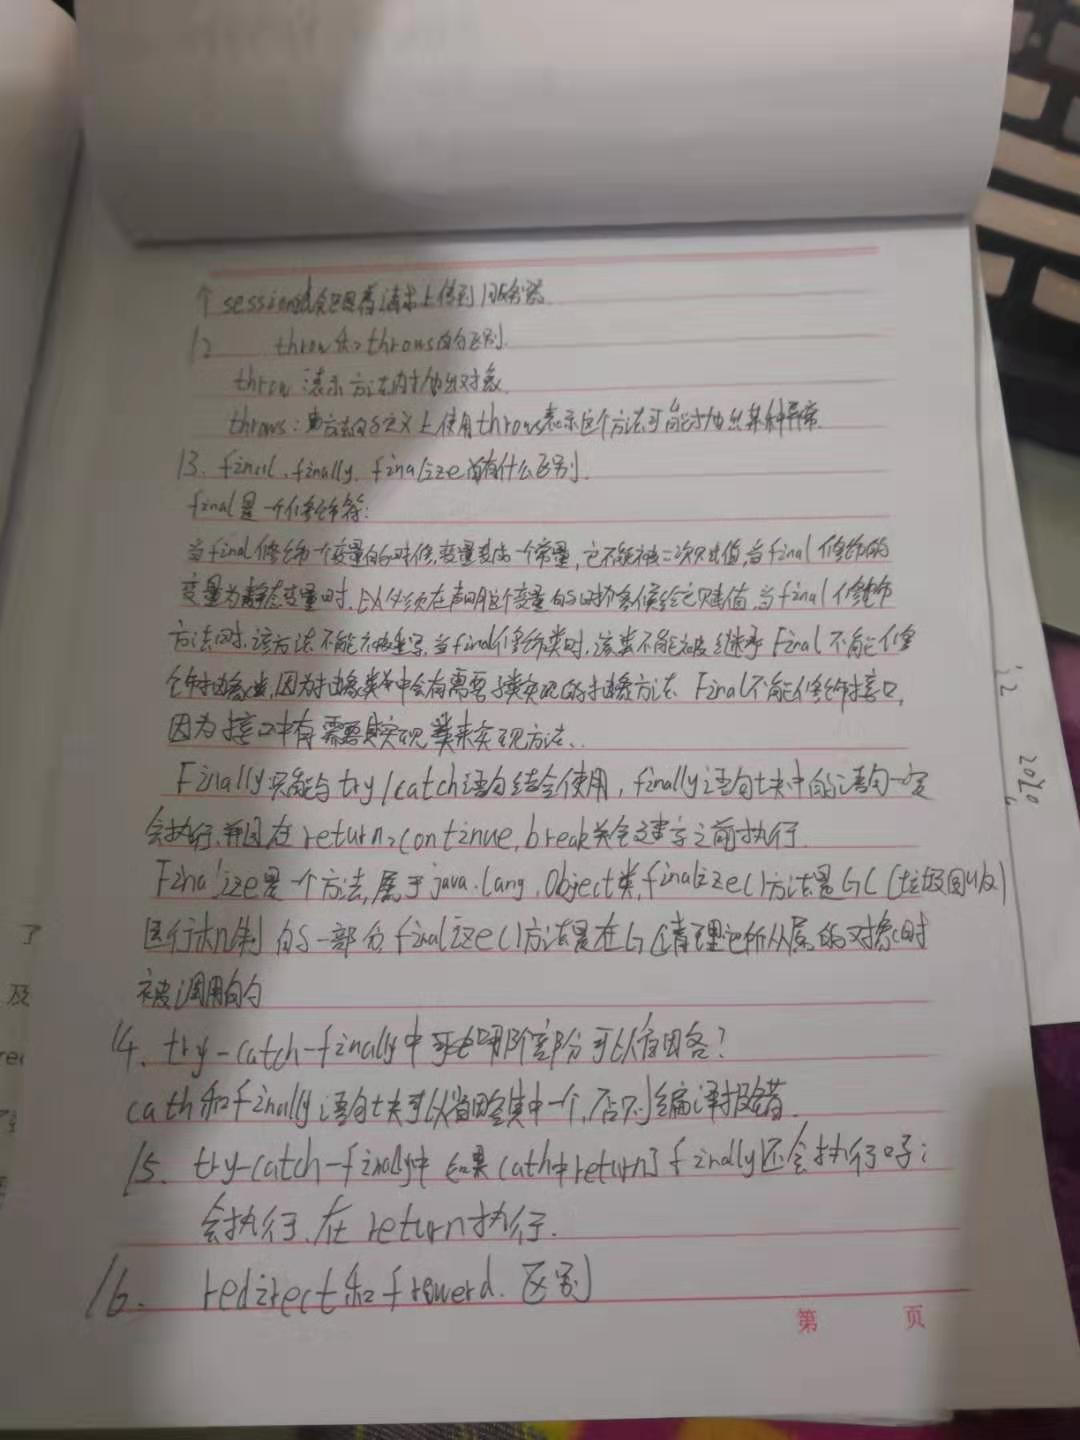 ↑ sessionid会跟着请求上传到服务器
12 throw和throws的区别.
throw: 表示方法内抛出对象.
throws: 方法的定义上使用throws表示这个方法可能抛出某种异常.
13. final、finally、finalize 有什么区别.
final是一个修饰符:
当final修饰一个变量的时候,变量变成一个常量,它不能被二次赋值,当final修饰的
变量为静态变量时,必须在声明这个变量的时候给它赋值,当final修饰
方法时,该方法不能被重写,当final修饰类时,该类不能被继承 Final 不能修
饰抽象类,因为抽象类中会有需要子类实现的抽象方法 Final不能修饰接口,
因为接口中有需要其实现类来实现方法、
Finally只能与try/catch语句结合使用,finally语句块中的语句一定
会执行,并且在return,continue,break关键字之前执行.
Finalize是一个方法,属于java.lang.Object类,finalize()方法是GC(垃圾回收)
运行机制的一部分 finalize()方法是在GC清理它所从属的对象时
被调用的
14. try-catch-finally中哪个部分可以省略?
cath和finally语句块可以省略其中一个,否则编译报错.
15. try-catch-finally中 如果cath中return了 finally还会执行吗;
会执行,在return执行.
16. redirect和froword.区别
第 页
2020
了
及